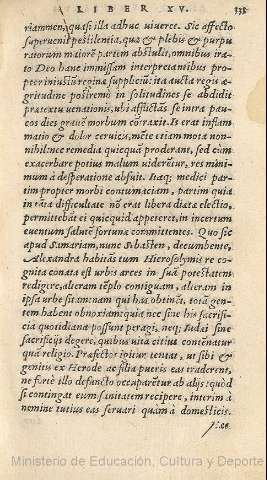 LIBER XV. 338
riãmnen, quasi illa adhuc viueret. Sic affecto
superuenit pestilentia, quæ & plebis & purpu
ratorum maiorẽ partem abstulit, omnibus ira-
to Deo hanc immissam interpretantibus pro-
pter iniustũ reginæ suppliciũ: ita aucta regis æ-
gritudine postremò in solitudines se abdidit
prætextu venationis. vbi afflictãs se intra pau-
cos dies grauẽ morbum cõtraxit. Is erat inflam
matio & dolor ceruicis, mẽte etiam mota non-
nihil. nec remedia quicquã proderant, sed cùm
exacerbare potius malum viderẽtur, res mini-
mum à desperatione abfuit. Itaq; medici par-
tim propter morbi contumaciam, partim quia
in tãta difficultate nõ erat libera diætæ electio,
permittebãt ei quicquid appeteret, in incertum
euentum salutẽ fortunæ committentes. Quo sic
apud Samariam, nunc Sebasten, decumbente,
Alexandra habitãs tum Hierosolymis re co-
gnita conata est vrbis arces in suã potestatem
redigere, alteram tẽplo contiguam, alteram in
ipsa vrbe sitam: nam qui has obtinet, totã gen-
tem habent obnoxiam: quia nec sine his sacrifi-
cia quotidiana possunt peragi, neq; Iudæi sine
sacrificijs degere, quibus vita citius contẽnatur
quã religio. Præfectos igitur tentat, vt sibi &
genitis ex Herode ac filia pueris eas traderent,
ne fortè illo defuncto occuparẽtur ab alijs: quòd
si contingat eum sanitatem recipere, interim à
nomine tutius eas seruari quàm à domesticis.
Ministerio de Educación, Cultura y Deporte